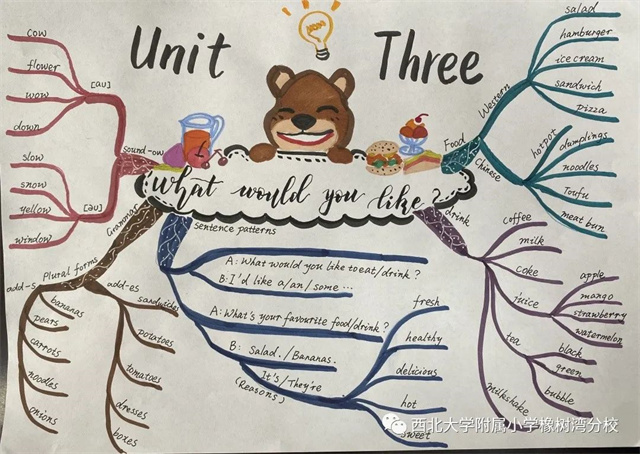 Unit Three
What would you like?
sound-ow
[aʊ]
cow
flower
wow
down
[əʊ]
slow
snow
yellow
window
Grammar
Plural forms
add-s
bananas
pears
carrots
noodles
onions
add-es
sandwiches
potatoes
tomatoes
dresses
boxes
sentence patterns
A: What would you like to eat/drink?
B: I'd like a/an/some ...
A: What's your favourite food/drink?
B: Salad./Bananas.
It's/They're
(Reasons)
fresh
healthy
delicious
hot
sweet
Food
Western
salad
hamburger
ice cream
sandwich
pizza
Chinese
hotpot
dumplings
noodles
Toufu
meat bun
drink
coffee
milk
coke
juice
apple
mango
strawberry
watermelon
tea
black
green
bubble
milkshake
西北大学附属小学橡树湾分校